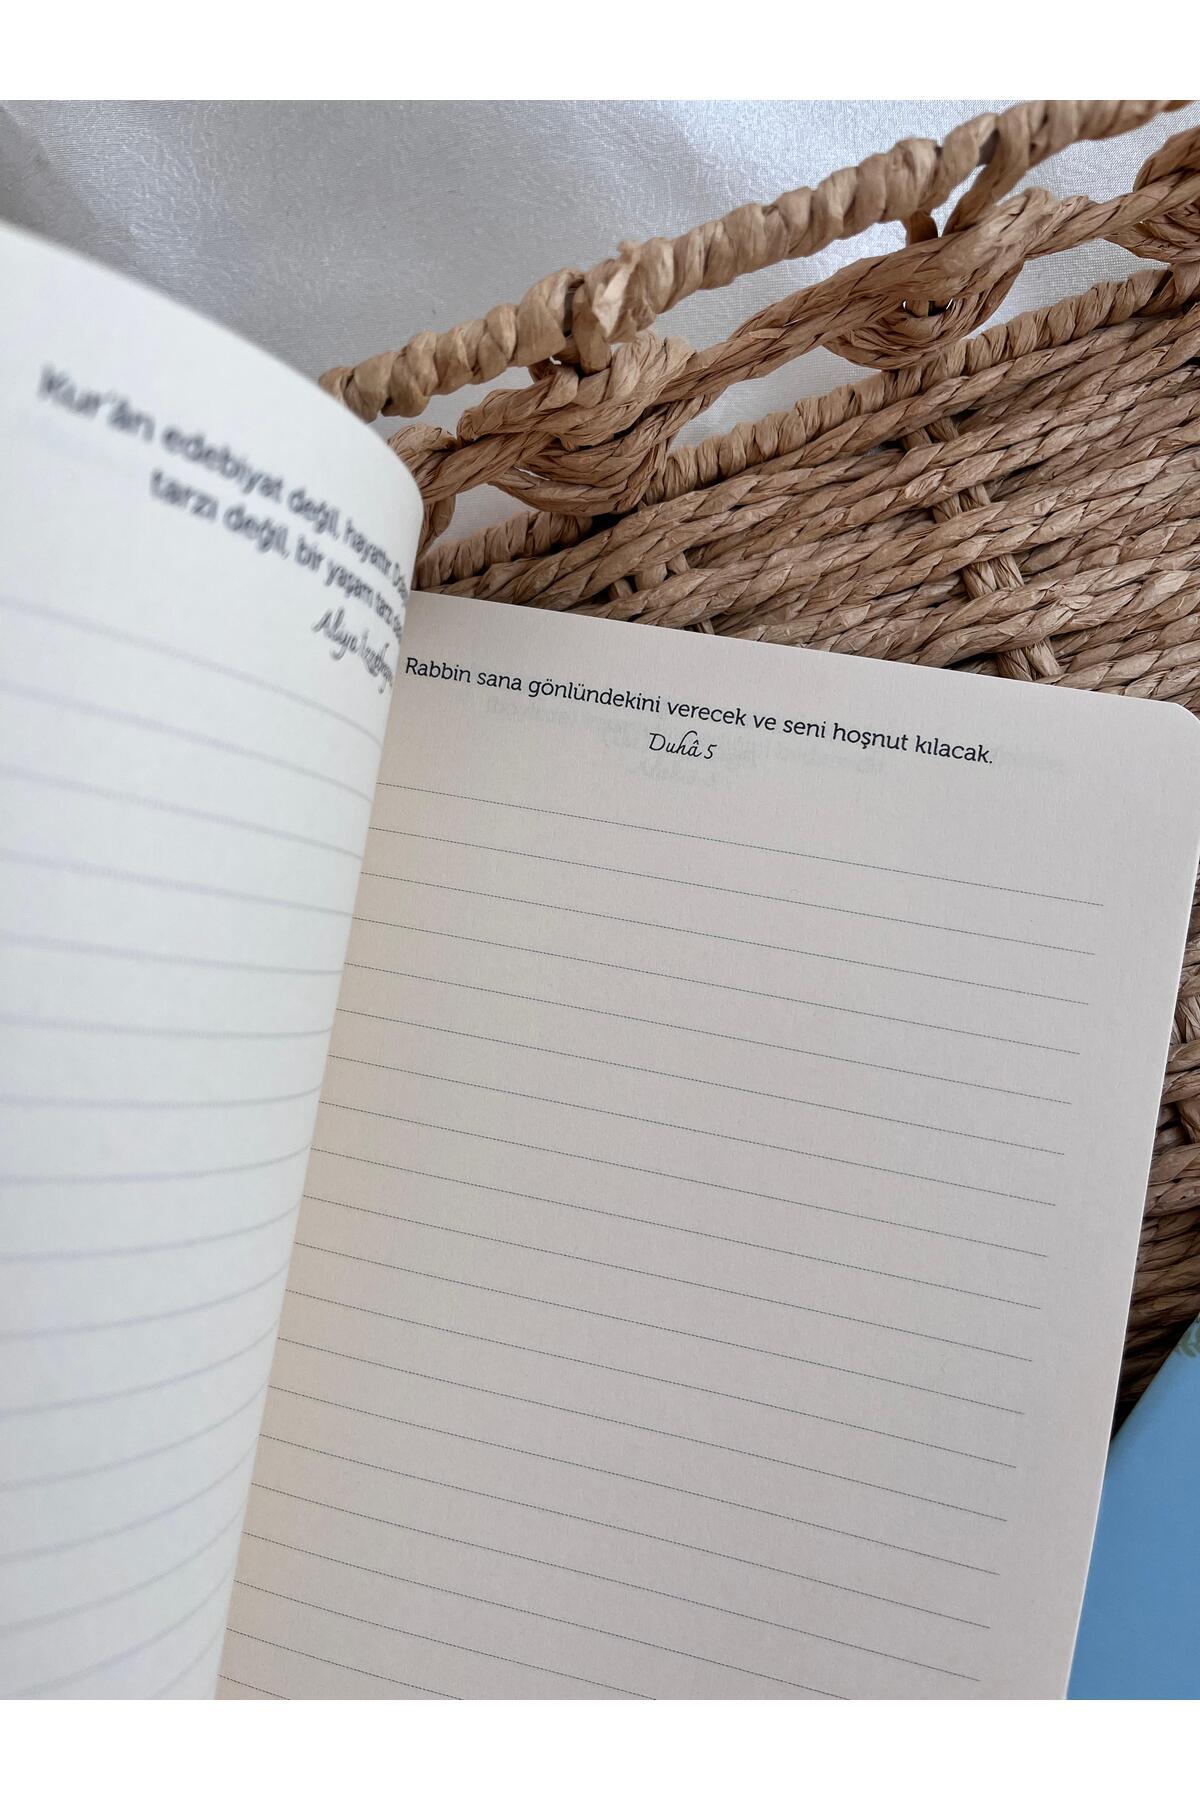 Kur'ân edebiyat değil, hayattır.
tarzı değil, bir yaşam tarzı
Aliya
Rabbin sana gönlündekini verecek ve seni hoşnut kılacak.
Duhâ 5